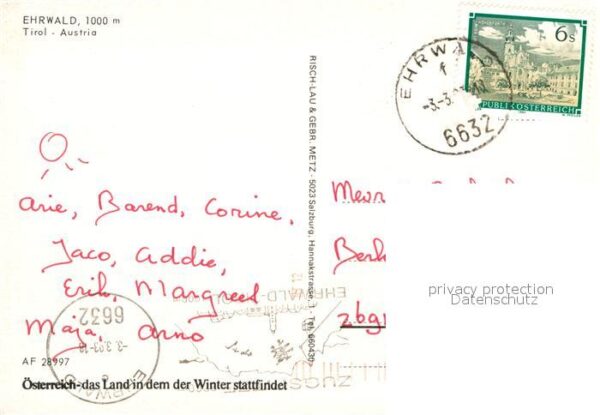 EHRWALD, 1000 m
Tirol - Austria
6s
REPUBLIK ÖSTERREICH
EHRWALD
f
6632
Arie, Barend, Corine,
Jaco, Addie,
Erik, Margreet
Maja, Arno
RISCH-LAU & GEBR. METZ - 5023 Salzburg, Hannakstrasse
Tel. 660430
Mevr
Berk
privacy protection
Datenschutz
EHRWALD-
ZUGS
6632
-3.3.93-18
EHRWALD
AF 28997
Österreich-das Land in dem der Winter stattfindet